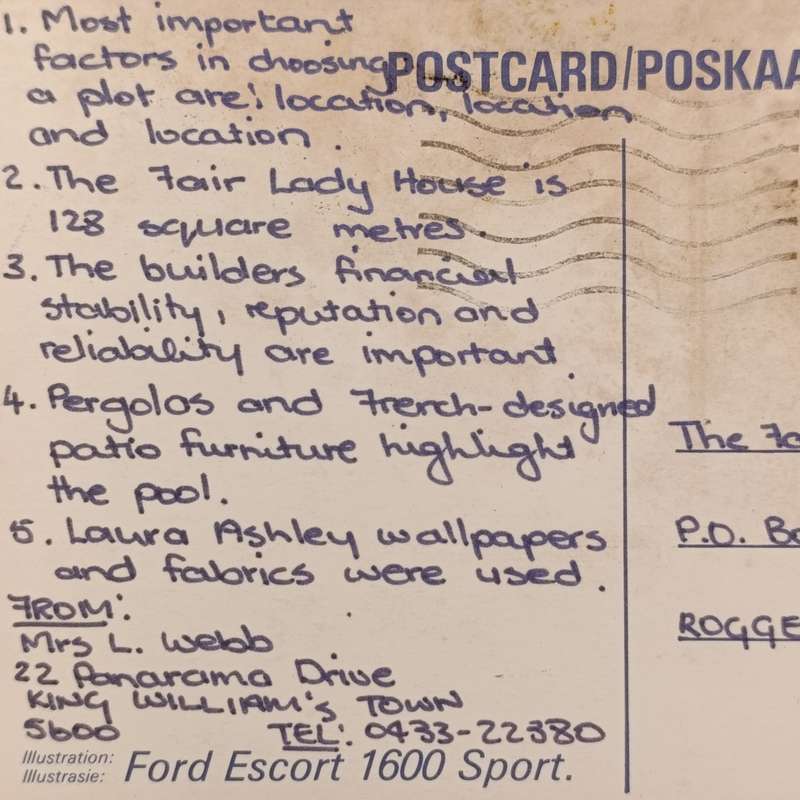 1. Most important
factors in choosing
a plot are: location, location
and location.
POSTCARD/POSKAA
2. The Fair Lady House is
128 square metres.
3. The builders financial
stability, reputation and
reliability are important.
4. Pergolas and French-designed
patio furniture highlight
the pool.
5. Laura Ashley wallpapers
and fabrics were used.
FROM:
Mrs L. Webb
22 Panarama Drive
KING WILLIAM's TOWN
5600 TEL: 0433-22380
Illustration:
Illustrasie:
Ford Escort 1600 Sport.
The Fa
P.O. Bo
ROGGE